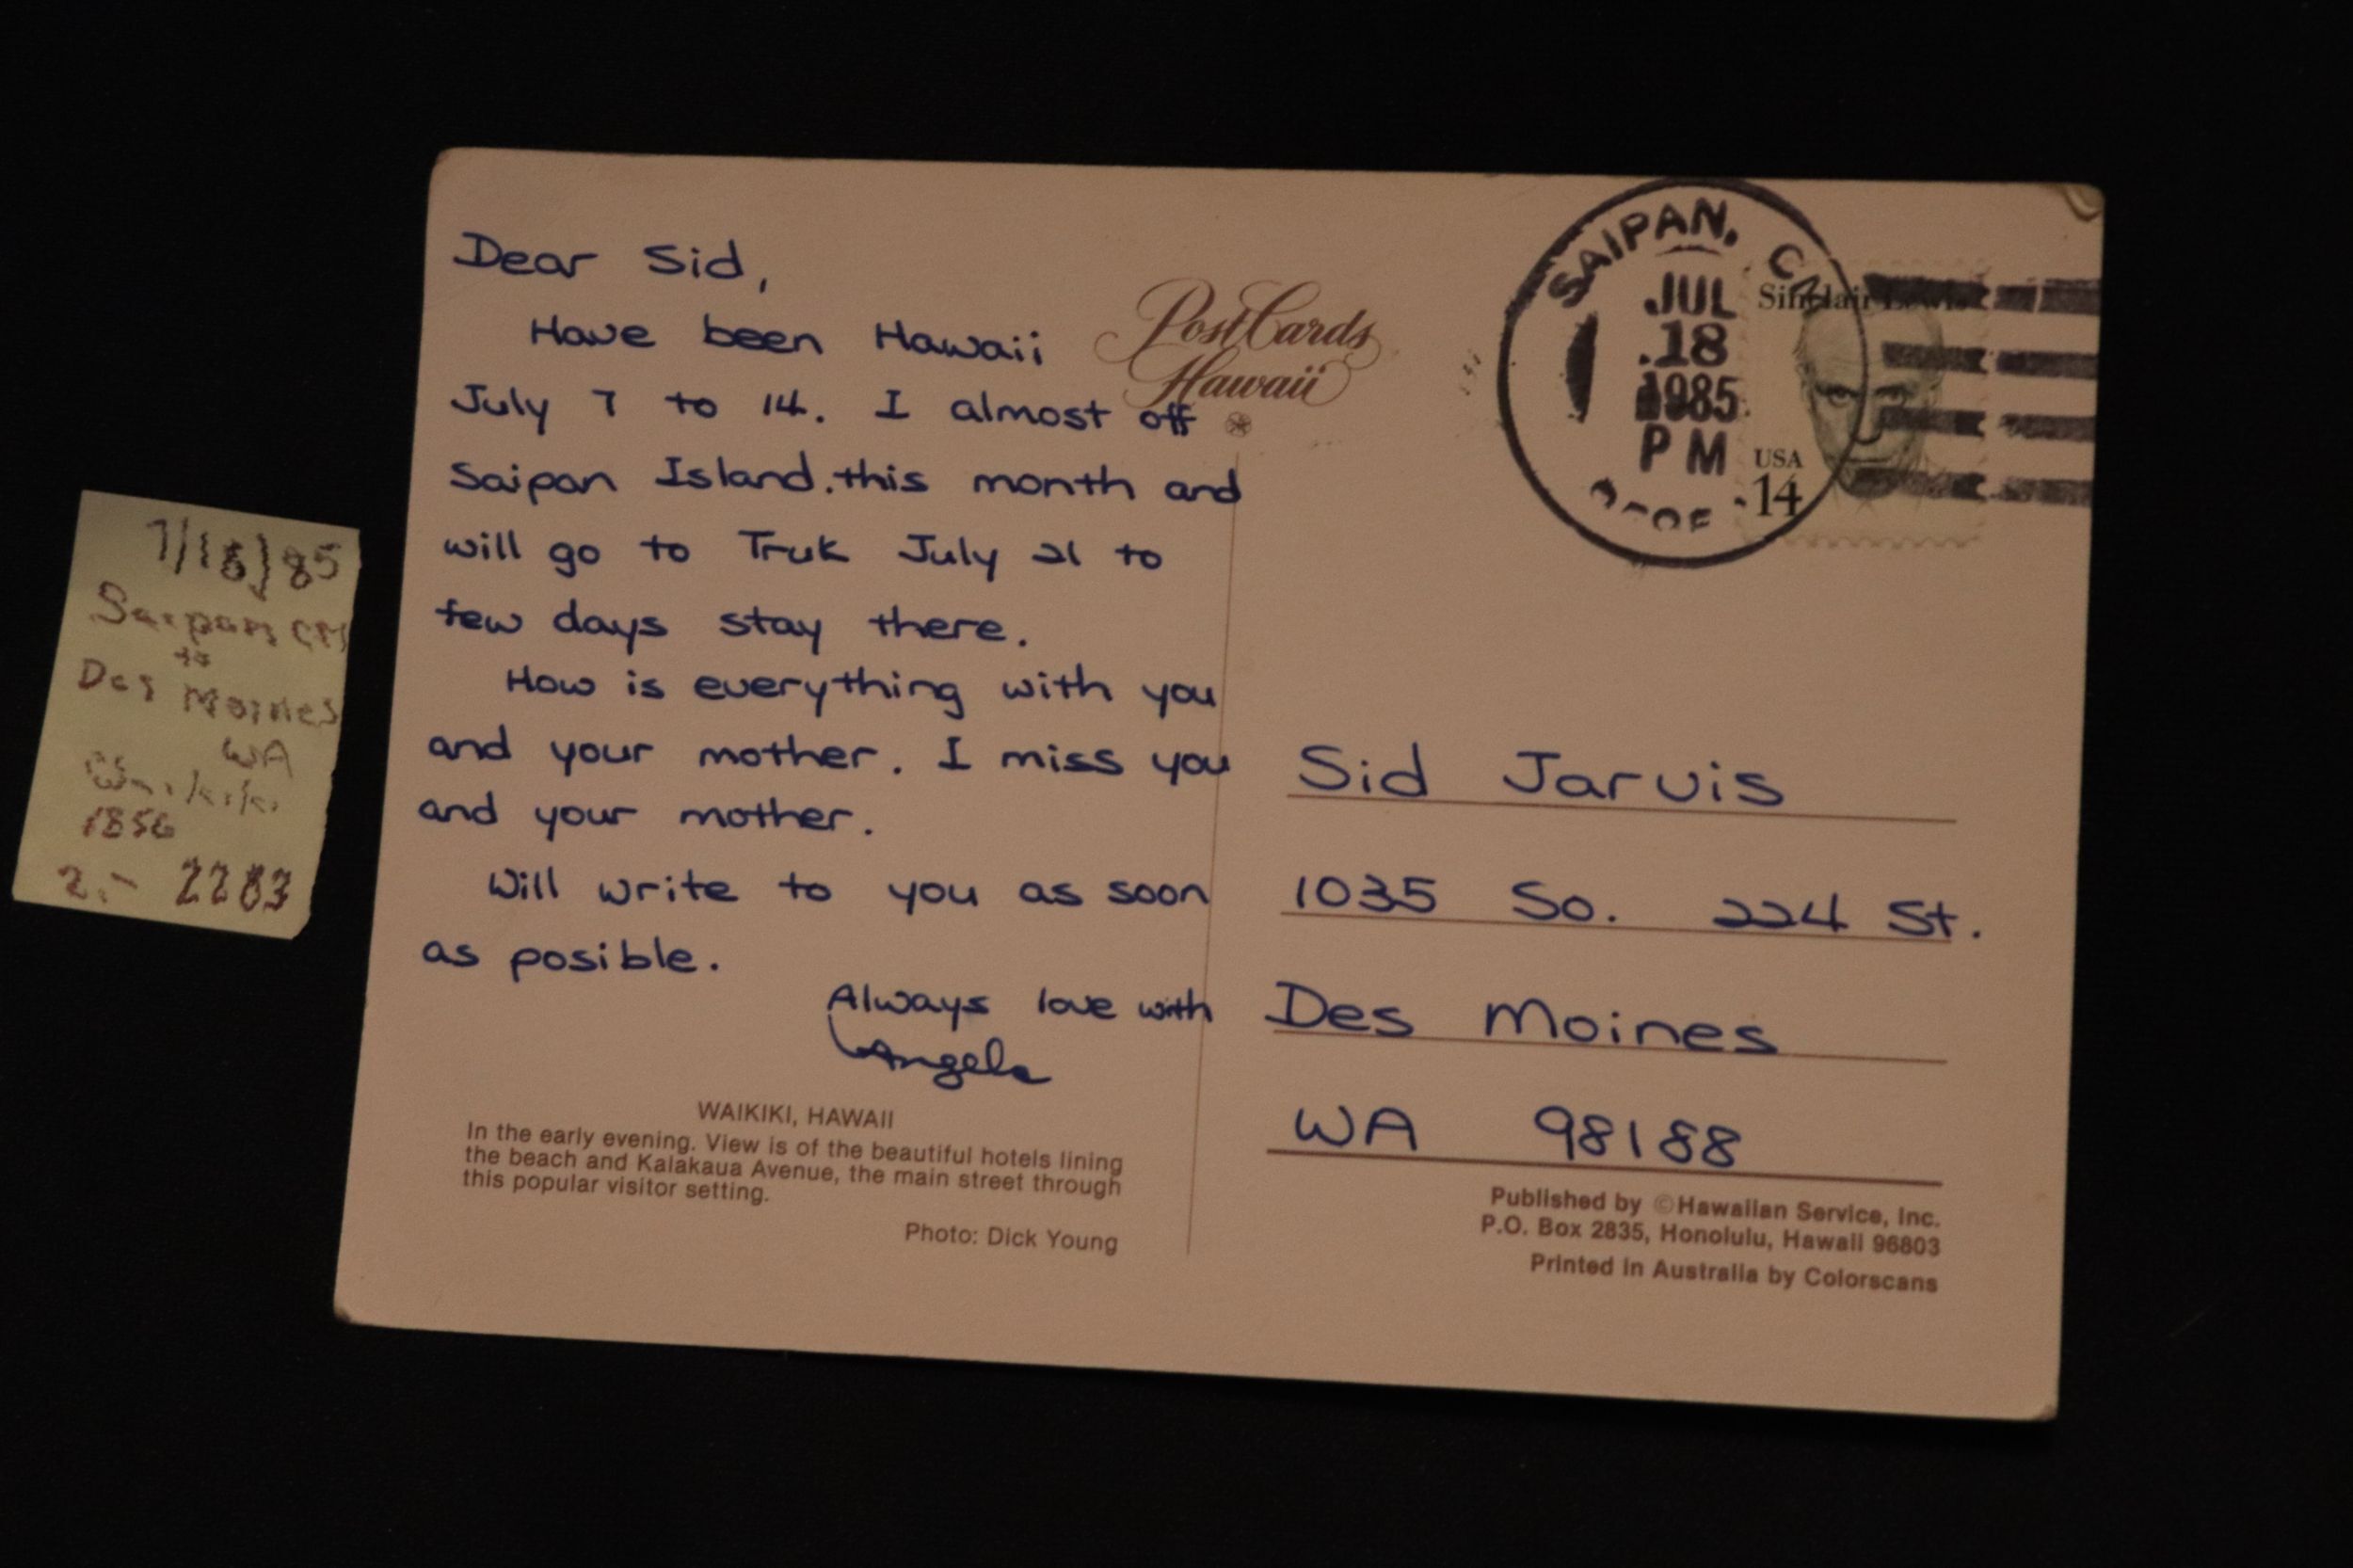 Dear Sid,
Have been Hawaii
July 7 to 14. I almost off
Saipan Island.this month and
will go to Truk July 21 to
few days stay there.
How is everything with you
and your mother. I miss you
and your mother.
Will write to you as soon
as posible.
Always love with
Angela
WAIKIKI, HAWAII
In the early evening. View is of the beautiful hotels lining
the beach and Kalakaua Avenue, the main street through
this popular visitor setting.
Photo: Dick Young
PostCards
Hawaii
SAIPAN, CM
JUL
18
1985
PM
Sinclair Lewis
USA
14
Sid Jarvis
1035 So. 224 St.
Des Moines
WA 98188
Published by ©Hawaiian Service, Inc.
P.O. Box 2835, Honolulu, Hawaii 96803
Printed in Australia by Colorscans
7/18/85
Saipan CM
to
Des Moines
WA
Waikiki
1856
2.- 2283